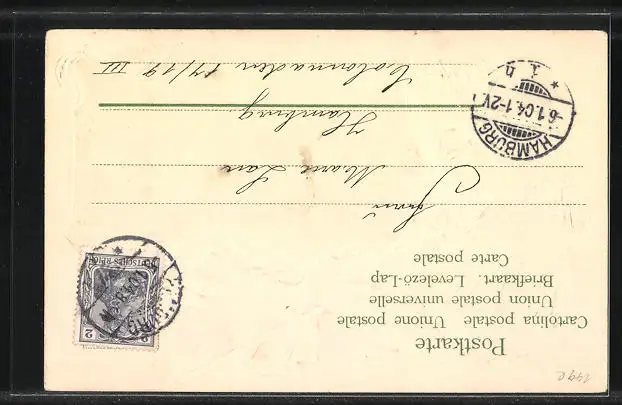 Postkarte
Cartolina postale Unione postale
Union postale universelle
Briefkaart. Levelező-Lap
Carte postale
Marie
Hamburg
Colonnaden 17/19 III
HAMBURG
6.1.04.1-2V.
* 1 h *
2 2
DEUTSCHES REICH
HAMBURG
149e